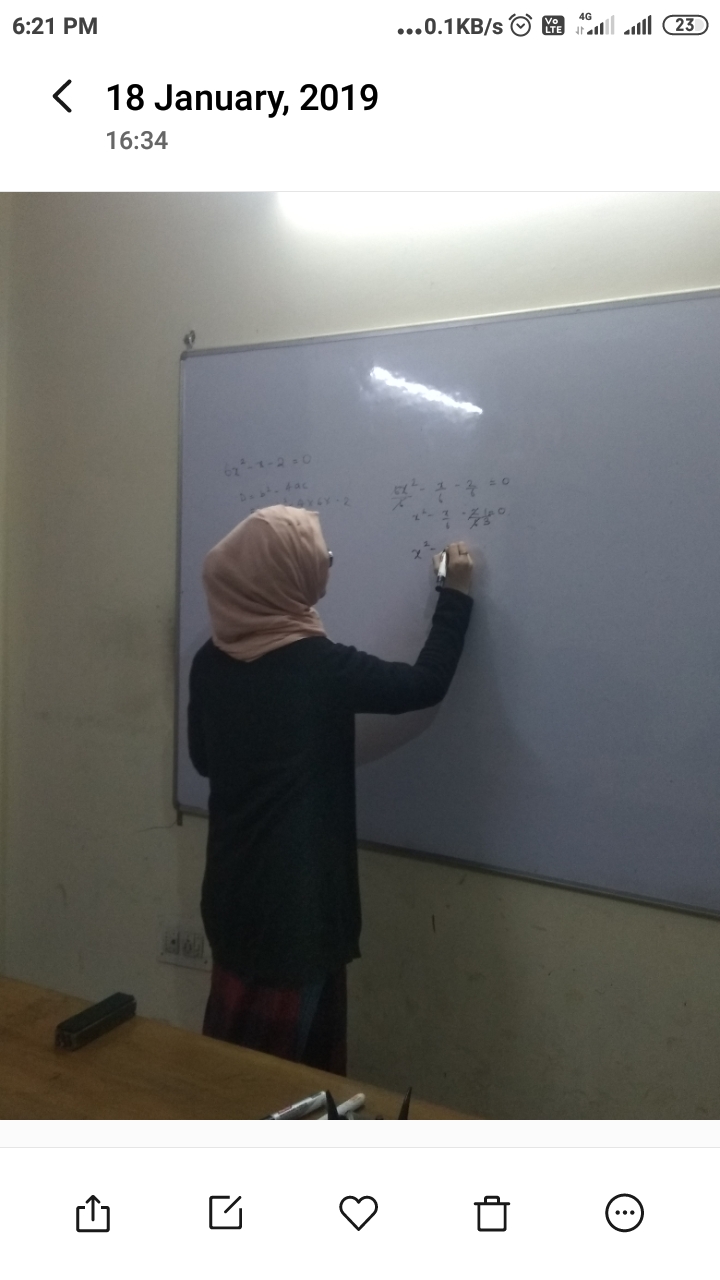 6:21 PM
...0.1KB/s
Vo LTE
4G
23
18 January, 2019
16:34
6x² - x - 2 = 0
D = b² - 4ac
- 4 × 6 × - 2
6x²/6 - x/6 - 2/6 = 0
x² - x/6 - = 0
x² -